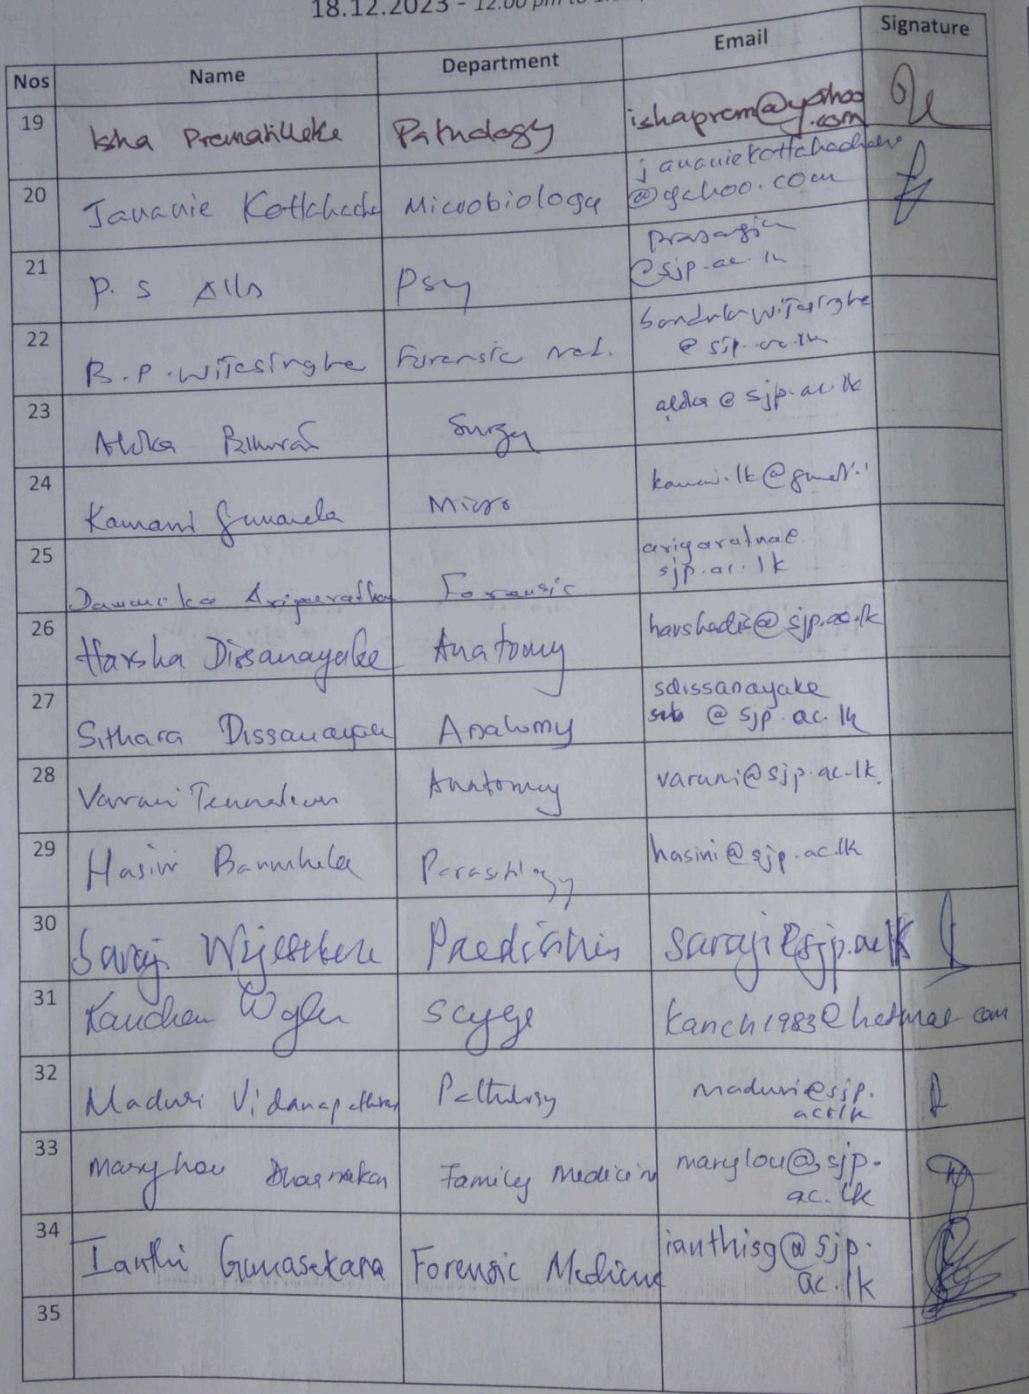 18.12.2023 - 12.00 pm to
Nos Name Department Email Signature
19 Isha Prematilleke Pathology ishaprem@yahoo
.com
20 Jananie Kottahachchi Microbiology jananiekottahachchi
@yahoo.com
21 P. S Alls Psy prasangik
@sjp.ac.lk
22 B.P.Wijesinghe Forensic Med. bandulawijesinghe
@sjp.ac.lk
23 Aloka Surgy aloka@sjp.ac.lk
24 Kamani Gunarela Micro
25 Dammika Ariyarathna Forensic ariyaratna@
sjp.ac.lk
26 Harsha Dissanayake Anatomy harshadis@sjp.ac.lk
27 Sithara Dissanayake Anatomy sdissanayake
@sjp.ac.lk
28 Varuni Tennakoon Anatomy varuni@sjp.ac.lk
29 Hasini Parasitlogy hasini@sjp.ac.lk
30 Saraji Wijesekera Paediatrics saraji@sjp.ac.lk
31 kanch1983@hotmail.com
32 Maduri Vidanapathirana Pathology maduri@sjp.
ac.lk
33 Marylou Dharmakan Family Medicine marylou@sjp.
ac.lk
34 Ianthi Gunasekara Forensic Medicine ianthisg@sjp.
ac.lk
35